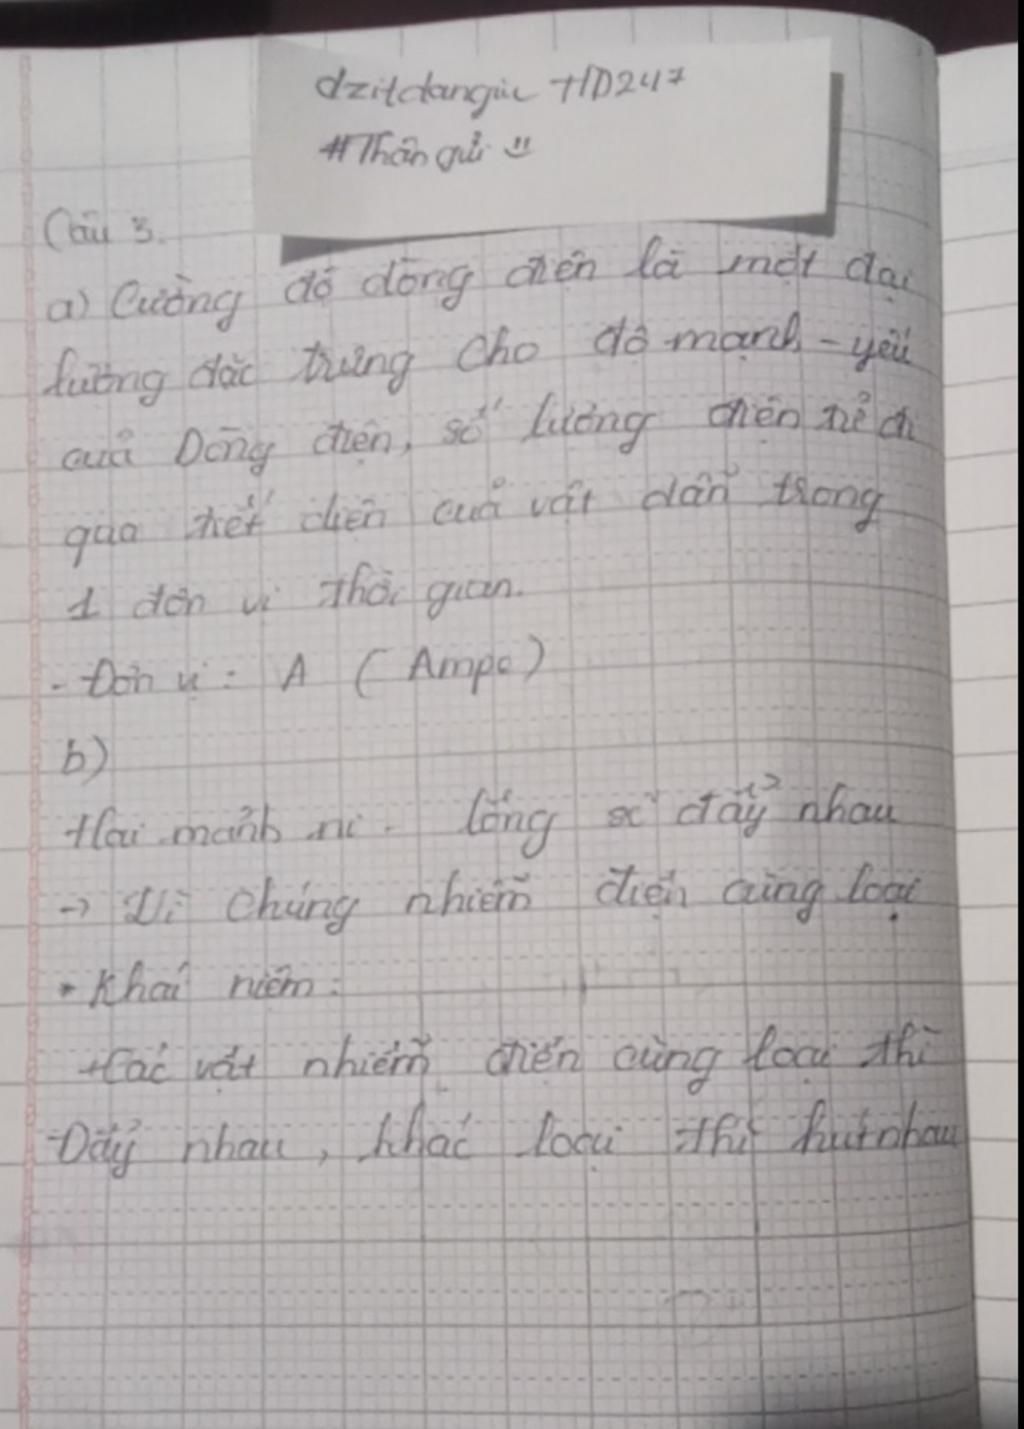 dzitdangiu HD247
#Thân gửi
Câu 3.
a) Cường độ dòng điện là một đại
lường đặc trưng cho độ mạnh - yếu
cuả Dòng điện, số lường điện tử đi
qua tiết diện cuả vật dẫn trong
1 đơn vị thời gian.
- Đơn vị : A ( Ampe)
b)
Hai mảnh ni - lông sẽ đẩy nhau
→ Vì chúng nhiễm điện cùng loại
• Khái niêm :
Các vật nhiễm điện cùng loại thì
Đẩy nhau, khác loại thì hút nhau